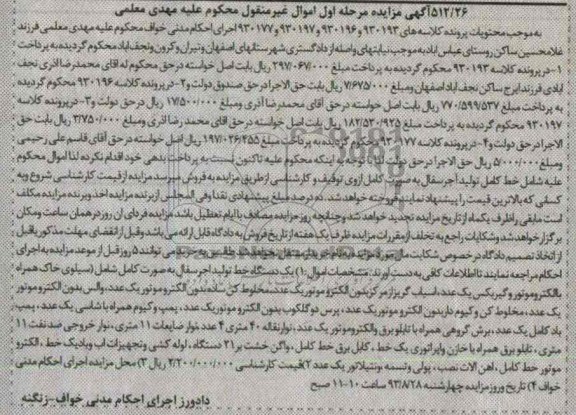 ۵۱۲/۲۶ آگهی مزایده مرحله اول اموال غیرمنقول محکوم علیه مهدی معلمی
به موجب محتویات پرونده کلاسه های ۹۳۰۱۹۳ و ۹۳۰۱۹۶ و ۹۳۰۱۹۷ و ۹۳۰۱۷۷ اجرای احکام مدنی خواف محکوم علیه مهدی معلمی فرزند
غلامحسین ساکن روستای عباس آباد به موجب نیابتهای واصله از دادگستری شهرستانهای اصفهان و تیران و کرون و نجف آباد محکوم گردیده به پرداخت
۱-درپرونده کلاسه ۹۳۰۱۹۳ محکوم گردیده به پرداخت مبلغ ۲۹۷/۰۶۷/۰۰۰ ریال بابت اصل خواسته در حق محکوم له آقای محمدرضا آذری نجف
آبادی فرزند ایرج ساکن نجف آباد اصفهان ومبلغ ۷/۶۷۵/۰۰۰ ریال بابت حق الاجرا در حق صندوق دولت و ۲-درپرونده کلاسه ۹۳۰۱۹۶ محکوم گردیده
به پرداخت مبلغ ۷۷۰/۵۹۹/۵۳۷ ریال بابت اصل خواسته در حق آقای محمدرضا آذری ومبلغ ۱۷/۵۰۰/۰۰۰ ریال در حق دولت و ۳-درپرونده کلاسه
۹۳۰۱۹۷ محکوم گردیده به پرداخت مبلغ ۱۸۲/۵۳۰/۹۲۵ ریال بابت اصل خواسته در حق آقای محمدرضا آذری ومبلغ ۳/۷۵۰/۰۰۰ ریال بابت حق
الاجرا در حق دولت و ۴-درپرونده کلاسه ۹۳۰۱۷۷ محکوم گردیده به پرداخت مبلغ ۱۹۷/۰۲۶/۴۵۵ ریال اصل خواسته در حق آقای قاسم علی رحیمی
ومبلغ ۵/۰۰۰/۰۰۰ ریال حق الاجرا در حق دولت اینکه محکوم علیه تاکنون نسبت به پرداخت بدهی خود اقدام نکرده لذا اموال محکوم
علیه شامل خط کامل تولید آجر سفال به صورت کامل از وی توقیف و کارشناسی از طریق مزایده به فروش میرسد مزایده از قیمت کارشناسی شروع و به
کسانی که بالاترین قیمت را پیشنهاد نمایند فروخته خواهد شد. ده درصد مبلغ پیشنهادی نقدا وفی المجلس از برنده مزایده اخذ وبرنده مزایده مکلف
است مابقی را ظرف یکماه از تاریخ مزایده تجدید خواهد شد وچنانچه روز مزایده مصادف با ایام تعطیل باشد مزایده فردای آن روز در همان ساعت ومکان
برگزار خواهد شد وشکایات راجع به تخلف از مقررات مزایده ظرف یک هفته از تاریخ فروش به دادگاه قابل ارائه می باشد وقبل از انقضای مهلت مذکور یا قبل
از اتخاذ تصمیم دادگاه در خصوص شکایت می توانند ۵ روز قبل از موعد مزایده به اجرای
احکام مراجعه نمایند تا اطلاعات کافی به دست آورند. مشخصات اموال: ۱) یک دستگاه خط تولید آجر سفال به صورت کامل شامل (سیلوی خاک همراه
با الکتروموتور و گیربکس یک عدد، آسیاب گریزازمرکز بدون الکتروموتور یک عدد، مخلوط کن ساده بدون الکتروموتور یک عدد، والس بدون الکتروموتور
یک عدد، مخلوط کن وکیوم دار بدون الکتروموتور یک عدد، پرس دوگلکوب بدون الکتروموتور یک عدد، پمپ وکیوم همراه با شاسی یک عدد، پمپ
باد کامل یک عدد، برش گروهی همراه با تابلو برق والکتروموتور یک عدد، نوارنقاله ۴۰ متری ۴ عدد نوار ضایعات ۱۱ متری، نوار خروجی ضدنفت ۱۱
متری، تابلو برق همراه با خازن واپراتوری یک خط، کابل برق خط کامل، واگن خشت بر ۲۱ دستگاه، لوله کشی وتجهیزات آب وبادیک خط، الکترو
موتور خط کامل، آهن آلات نصب، پولی وتسمه وونتیلاتور یک عدد ۲)قیمت کارشناسی ۲/۲۰۰/۰۰۰/۰۰۰ ریال ۳) محل مزایده اجرای احکام مدنی
خواف ۴) تاریخ وروز مزایده چهارشنبه ۹۳/۸/۲۸ ساعت ۱۰-۱۱ صبح
دادورز اجرای احکام مدنی خواف-زنگنه